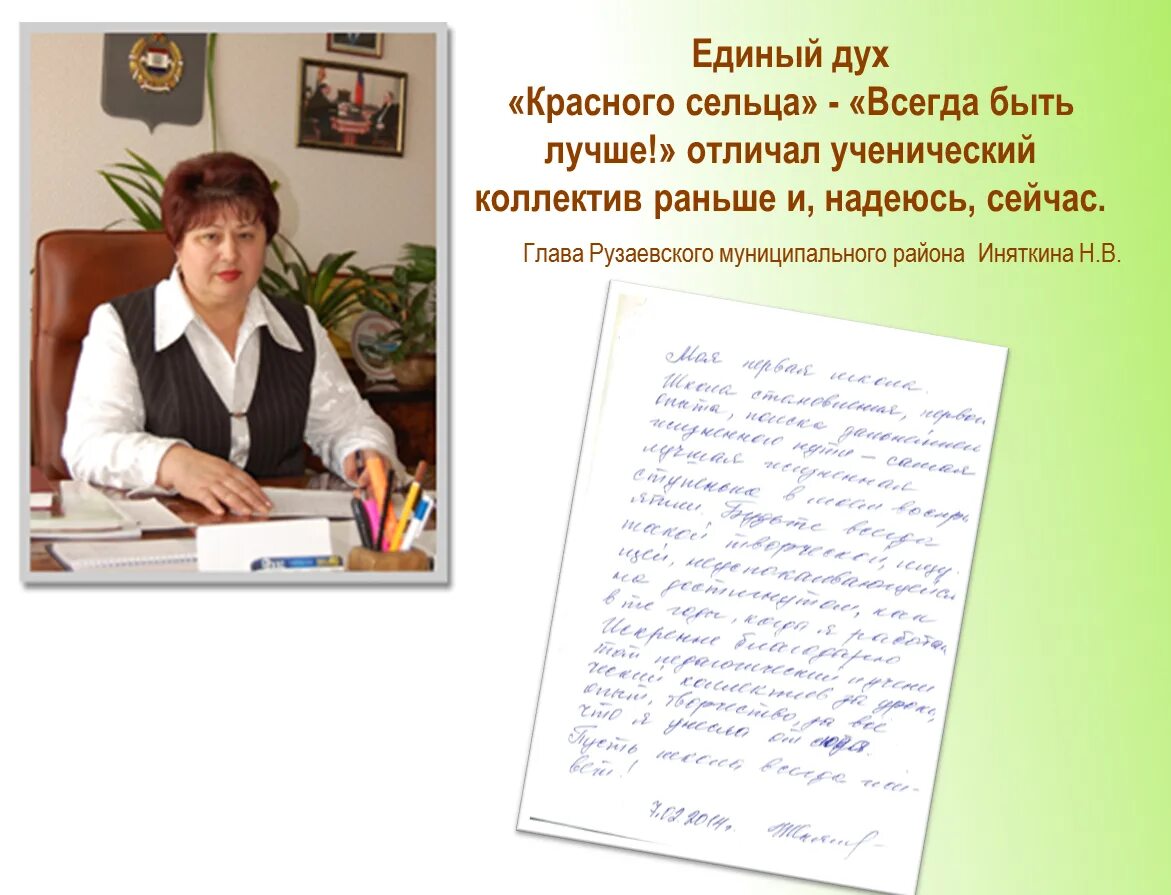 Единый дух
«Красного сельца» - «Всегда быть
лучше!» отличал ученический
коллектив раньше и, надеюсь, сейчас.
Глава Рузаевского муниципального района Иняткина Н.В.
Моя первая школа.
Школа становления, первого
опыта, поиска
жизненного пути – самая
лучшая жизненная
ступенька в моём воспри
ятии. Будьте всегда
такой творческой, ищу
щей, неуспокаивающейся
на достигнутом, как
в те годы, когда я работала
Искренне благодарю
тот педагогический и учени
ческий коллектив за уроки,
опыт, творчество, за всё
что я унесла от сюда.
Пусть школа всегда жи
вет!
7.02.2014г.